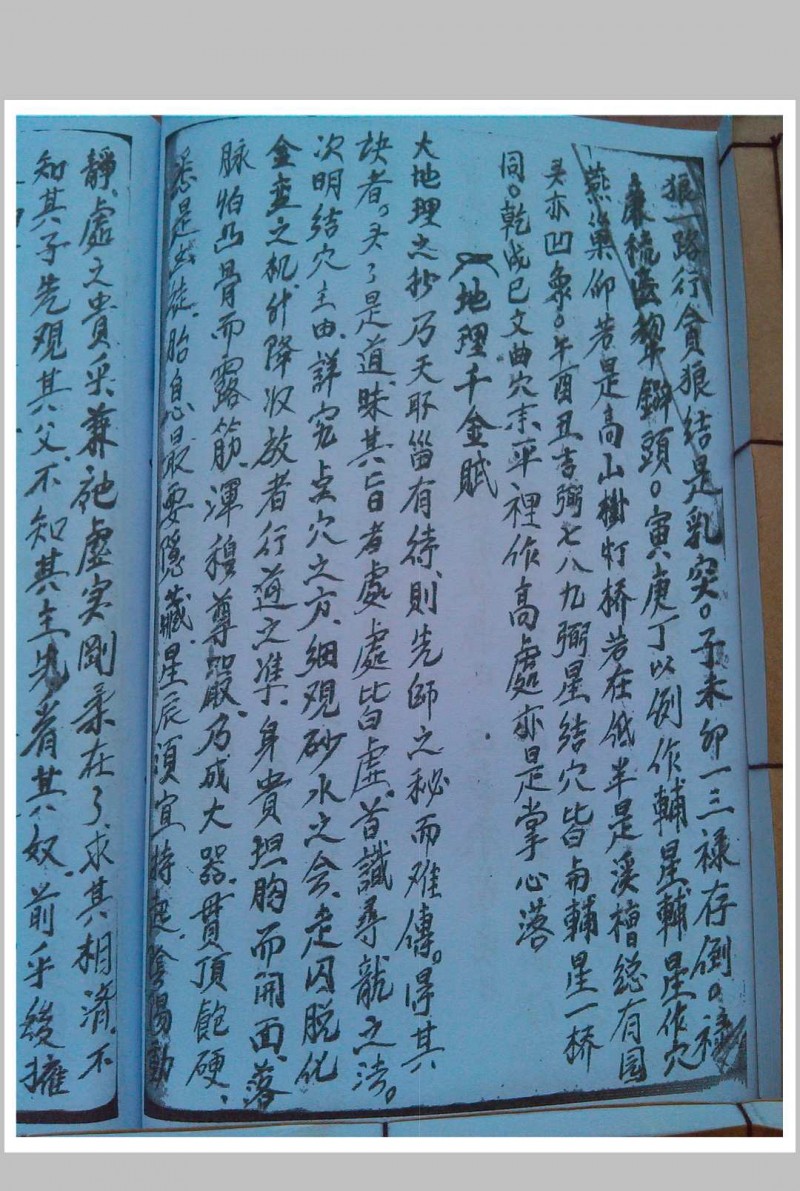 狼一路行貪狼結是乳突。子未卯一三祿存倒。祿
廉梳齒犂鐴頭。寅庚丁以例作輔星輔星作穴
燕巢仰若是高山樹灯桥若在低半是溪檜総有园
头亦凹象。午酉丑吉弼七八九弼星結穴皆輔星一桥
同。乾戊巳文曲穴平裡作高處亦是掌心落
地理千金賦
大地理之抄乃天有待則先師之秘而难傳。得其
訣者。头了是道昧其旨者處處皆虛首識尋龍之法。
次明結穴主由詳究点穴之方細观砂水之会走囚脱化
金之机升降收放者行道之準身貴坦胸而開面落
脉怕凸骨而露筋渾穆尊嚴乃成大器貫頂飽硬
悉是徒胎息最要隱藏星辰須宜特起陰陽動
靜處之貴乎兼虛实剛柔在了求其相濟不
知其子先观其父不知其主先看其奴前乎後擁